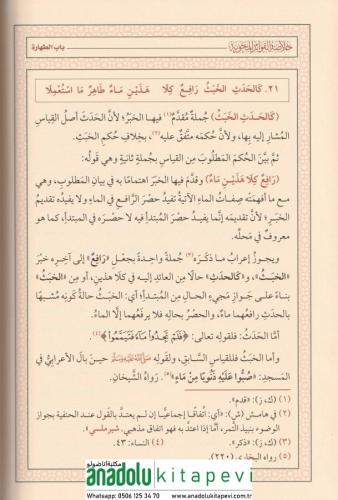 خلاصة الفوائد المحوية
باب الطهارة
٢١. كَالحَدَثِ الخَبَثُ رَافِعٌ كِلَا هَذَيْنِ مَاءٌ طَاهِرٌ مَا اسْتُعْمِلَا
(كَالحَدَثِ الخَبَثُ) جُملةٌ مُقدَّمٌ(١) فيها الخبَرُ؛ لأنَّ الحَدَثَ أصلُ القِياسِ
المُشارِ إليه بها، ولأنَّ حُكمَه متَّفقٌ عليه(٢)، بخِلافِ حُكمِ الخبَثِ.
ثمَّ بيَّنَ الحُكمَ المَطلُوبَ مِن القِياسِ بجُملةٍ ثانيةٍ وهي قَولُه:
(رَافِعٌ كِلَا هَذَيْنِ مَاءٌ) وقدَّمَ فيها الخبَرَ اهتِمامًا به في بيَانِ المَطلوبِ، وهي
مع ما أفهمَتْه صِفاتُ الماءِ الآتيةُ تفيدُ حصْرَ الرَّافعِ في الماءِ ولا يفيدُه تقديمُ
الخبَرِ؛ لأنَّ تقديمَه إنَّما يفيدُ حصْرَ المُبتدأِ فيه لا حصْرَه في المبتدأِ، كما هو
معروفٌ في مَحلِّه.
ويجوزُ إعرابُ ما ذَكَرَه(٣) جُملةً واحدةً بجَعلِ «رَافِعٌ» إلى آخِرِه خبَرَ
«الخبَثُ»، و«كَالحدَثِ» حالًا مِن العائدِ إليه في كلا هذَينِ، أو مِن «الخبَثُ»
بناءً على جَوازِ مَجيءِ الحالِ مِن المُبتدأِ؛ أي: الخبَثُ حالةَ كَونِه مُشبَّهًا
بالحدَثِ رافعُهما ماءٌ، والحَصْرُ بحالِه فلا يرفَعُهما إلَّا الماءُ.
أمَّا الحَدَثُ: فلقولِه تعالى: ﴿فَلَمْ تَجِدُوا مَاءً فَتَيَمَّمُوا﴾(٤).
وأما الخبَثُ فللقِياسِ السَّابقِ، ولقَولِه ﷺ حينَ بالَ الأعرابيُّ في
المَسجدِ: «صُبُّوا عَلَيْهِ ذَنُوبًا مِنْ مَاءٍ»(٥). رَواهُ الشَّيخانِ.
(١) (ك، ز): «قدم».
(٢) في هامش (ش): «أي: اتفاقًا إجماعيًّا إن لم يعتدَّ بالقول عند الحنفية بجواز
الوضوء بنبيذ التَّمر، أمَّا إذا اعتدَّ به فهو اتفاق مذهبي. شبرملسي».
(٣) (ك، ز): «ذكر».
(٤) النساء: ٤٣.
(٥) رواه البخاري (٢٢٠).
مكتبة اناضولو
anadolu kitapevi
Whatsapp: 0506 125 34 70 www.anadolukitapevi.com